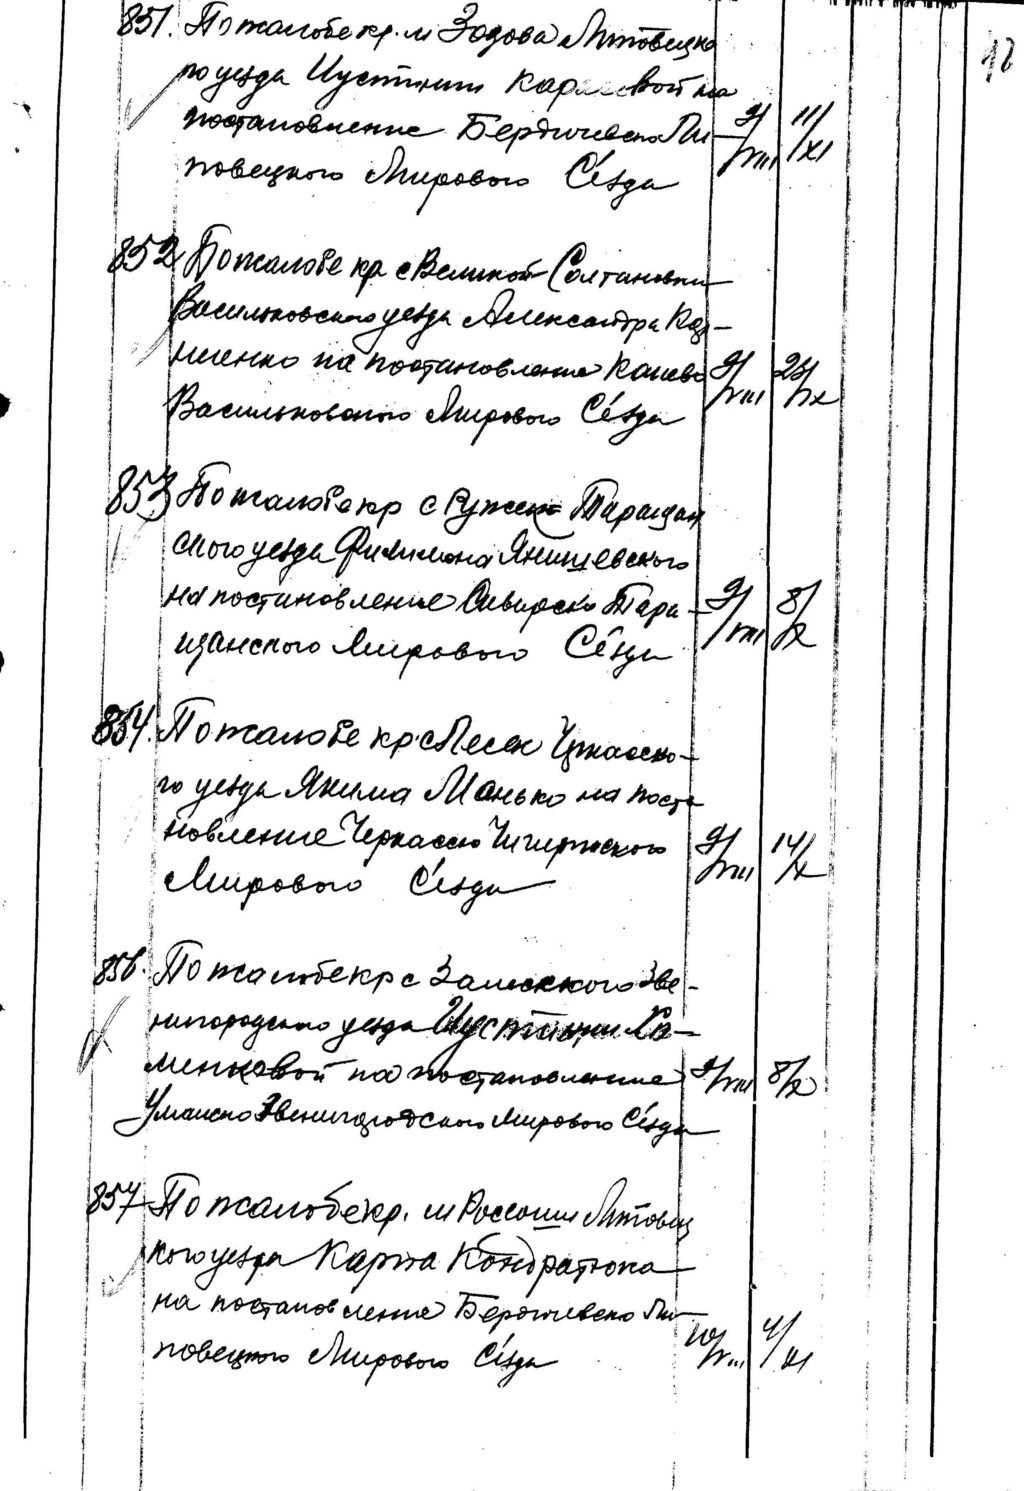 12
851. По жалобе кр. м Зозова Липовецко
го уезда Иустины Карповой на
постановление Бердичевско Ли- 9/VIII 11/XI
повецкого Мирового Сезда
852 По жалобе кр с Великой Солтановки
Васильковского уезда Александра Каз-
миенко на постановление Канево 9/VIII 25/IX
Васильковского Мирового Сезда
853 По жалобе кр с Ружек Таращан
ского уезда Филимона Янишевского
на постановление Сквирско Тара- 9/VIII 8/X
щанского Мирового Сезда
854. По жалобе кр с Лесек Черкасско-
го уезда Якима Манько на поста
новление Черкасско Чигиринского 9/VIII 14/X
Мирового Сезда
856. По жалобе кр с Залисского Зве-
нигородского уезда Иустины Хо-
менковой на постановление 9/VIII 8/X
Уманско Звенигородского Мирового Сезда
857 По жалобе кр. м Россоши Липовец
кого уезда Карпа Кондратюка
на постановление Бердичевско Ли- 10/VIII 4/XI
повецкого Мирового Сезда